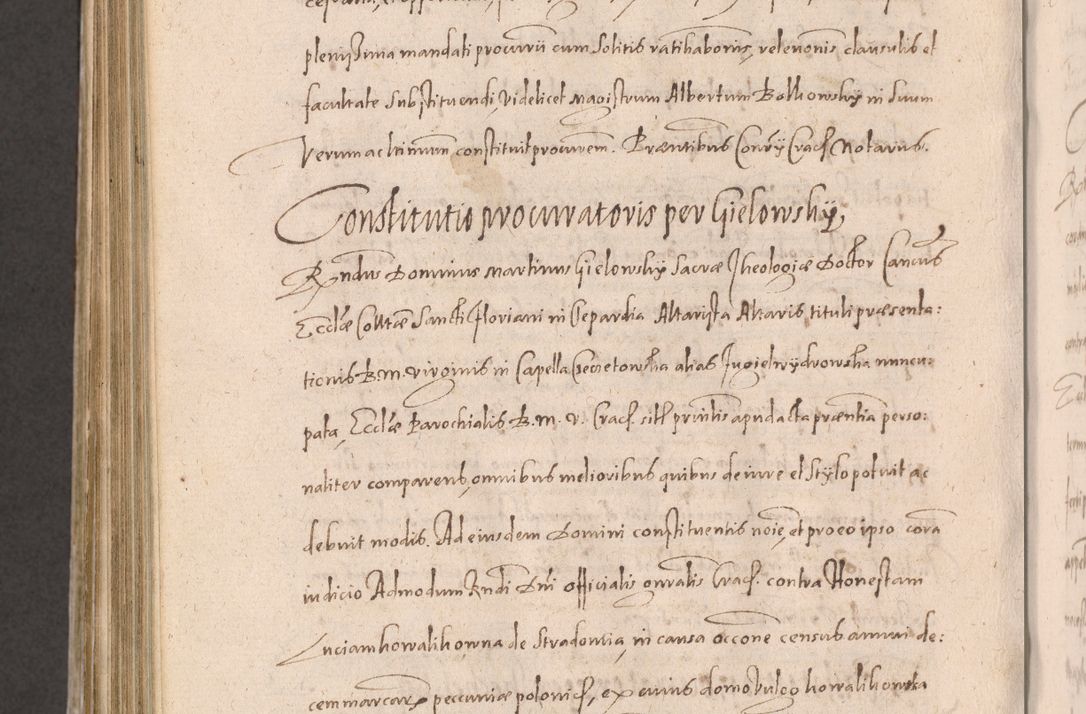 plenissima mandati procurii cum solitis ratihabonis, relevonis clausulis et
facultate substituendi, videlicet Magistrum Albertum Bolhowskÿ in suum
Verum ac ltimum constituit procurem. Præntibus Conrÿ Cracs Notarius.
Constitutio procuratoris per Gielowskÿ,
Rndus Dominus Martinus Gielowskÿ Sacræ Theologiæ Doctor Cancus
Ecclæ Colltæ Sancti Floriani in Clepardia Altarista Altaris tituli præsenta:
tionis B. M. virginis in Capella alias nuncu:
pata, Ecclæ Parochialis B. M. V. Cracs. sitl printis apud acta præntia perso:
naliter comparens, omnibus melioribus quibus de iure et stÿlo potuit ac
debuit modis. Ad eiusdem Domini constituentis noie, et pro eo ipso cora
iudicio Admodum Rndi Dni officialis gnralis Cracs. contra Honestam
Luciam kowalikowna de Stradomia, in causa occone census annui de:
cem marcarz peccuniæ polonics, ex cuius domo vulgo kowalikowska